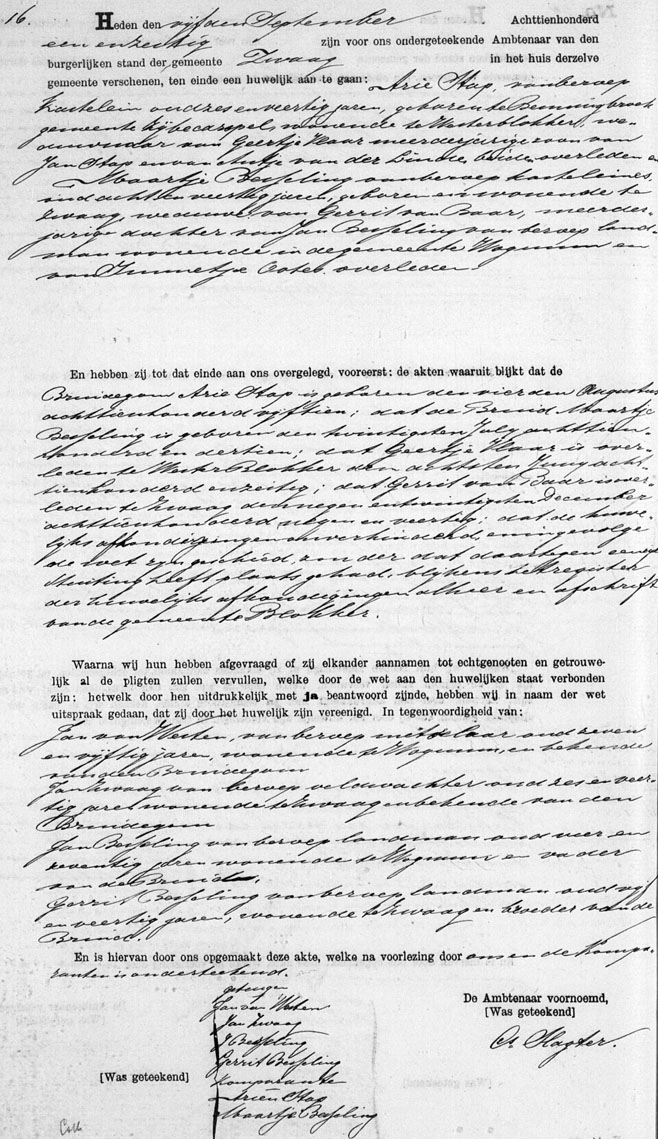 16.
Heden den vijfden September Achttienhonderd
een en zestig zijn voor ons ondergeteekende Ambtenaar van den
burgerlijken stand der gemeente Zwaag in het huis derzelve
gemeente verschenen, ten einde een huwelijk aan te gaan: Arie Stap, van beroep
Kastelein oud zes en veertig jaren, geboren te Benningbroek
gemeente Sijbecarspel, wonende te Westerblokker, we-
duwnaar van Geertje Klaar meerderjarige zoon van
Jan Stap en van Antje van der Linde, beiden overleden en
Maartje Besseling van beroep kasteleines,
oud acht en veertig jaren, geboren en wonende te
Zwaag, weduwe van Gerrit van Baar, meerder-
jarige dochter van Jan Besseling van beroep land-
man wonende in de gemeente Wognum en
van Immetje overleden.
En hebben zij tot dat einde aan ons overgelegd, vooreerst: de akten waaruit blijkt dat de
Bruidegom Arie Stap is geboren den vierden Augustus
achttienhonderd vijftien; dat de Bruid Maartje
Besseling is geboren den twintigsten July achttien-
honderd en dertien; dat Geertje Klaar is over-
leden te Westerblokker den achtsten Juny acht-
tienhonderd en zestig; dat Gerrit van Baar is over-
leden te Zwaag den negen en twintigsten December
achttienhonderd negen en veertig; dat de huwe-
lijks afkondigingen onverhinderd, en ingevolge
de wet zijn geschied, zonder dat daartegen eenige
stuiting heeft plaats gehad, blijkens het register
der huwelijks afkondigingen alhier en afschrift
van de gemeente Blokker.
Waarna wij hun hebben afgevraagd of zij elkander aannamen tot echtgenooten en getrouwe-
lijk al de pligten zullen vervullen, welke door de wet aan den huwelijken staat verbonden
zijn: hetwelk door hen uitdrukkelijk met ja beantwoord zijnde, hebben wij in naam der wet
uitspraak gedaan, dat zij door het huwelijk zijn vereenigd. In tegenwoordigheid van:
Jan van Westen, van beroep metselaar oud zeven
en vijftig jaren, wonende te Wognum, en bekende
van den Bruidegom
Jan Zwaag van beroep veldwachter oud zes en veer-
tig jaren wonende te Zwaag en bekende van den
Bruidegom
Jan Besseling van beroep landman oud vier en
zeventig jaren wonende te Wognum en vader
van de Bruid.
Gerrit Besseling van beroep landman oud vijf
en veertig jaren, wonende te Zwaag en broeder van de
Bruid.
En is hiervan door ons opgemaakt deze akte, welke na voorlezing door ons en de Kompa-
ranten is onderteekend.
getuigen
Jan van Westen
Jan Zwaag
J Besseling
Gerrit Besseling
[Was geteekend] komparanten
Ariën Stap
Maartje Besseling
De Ambtenaar voornoemd,
[Was geteekend]
Slagter.